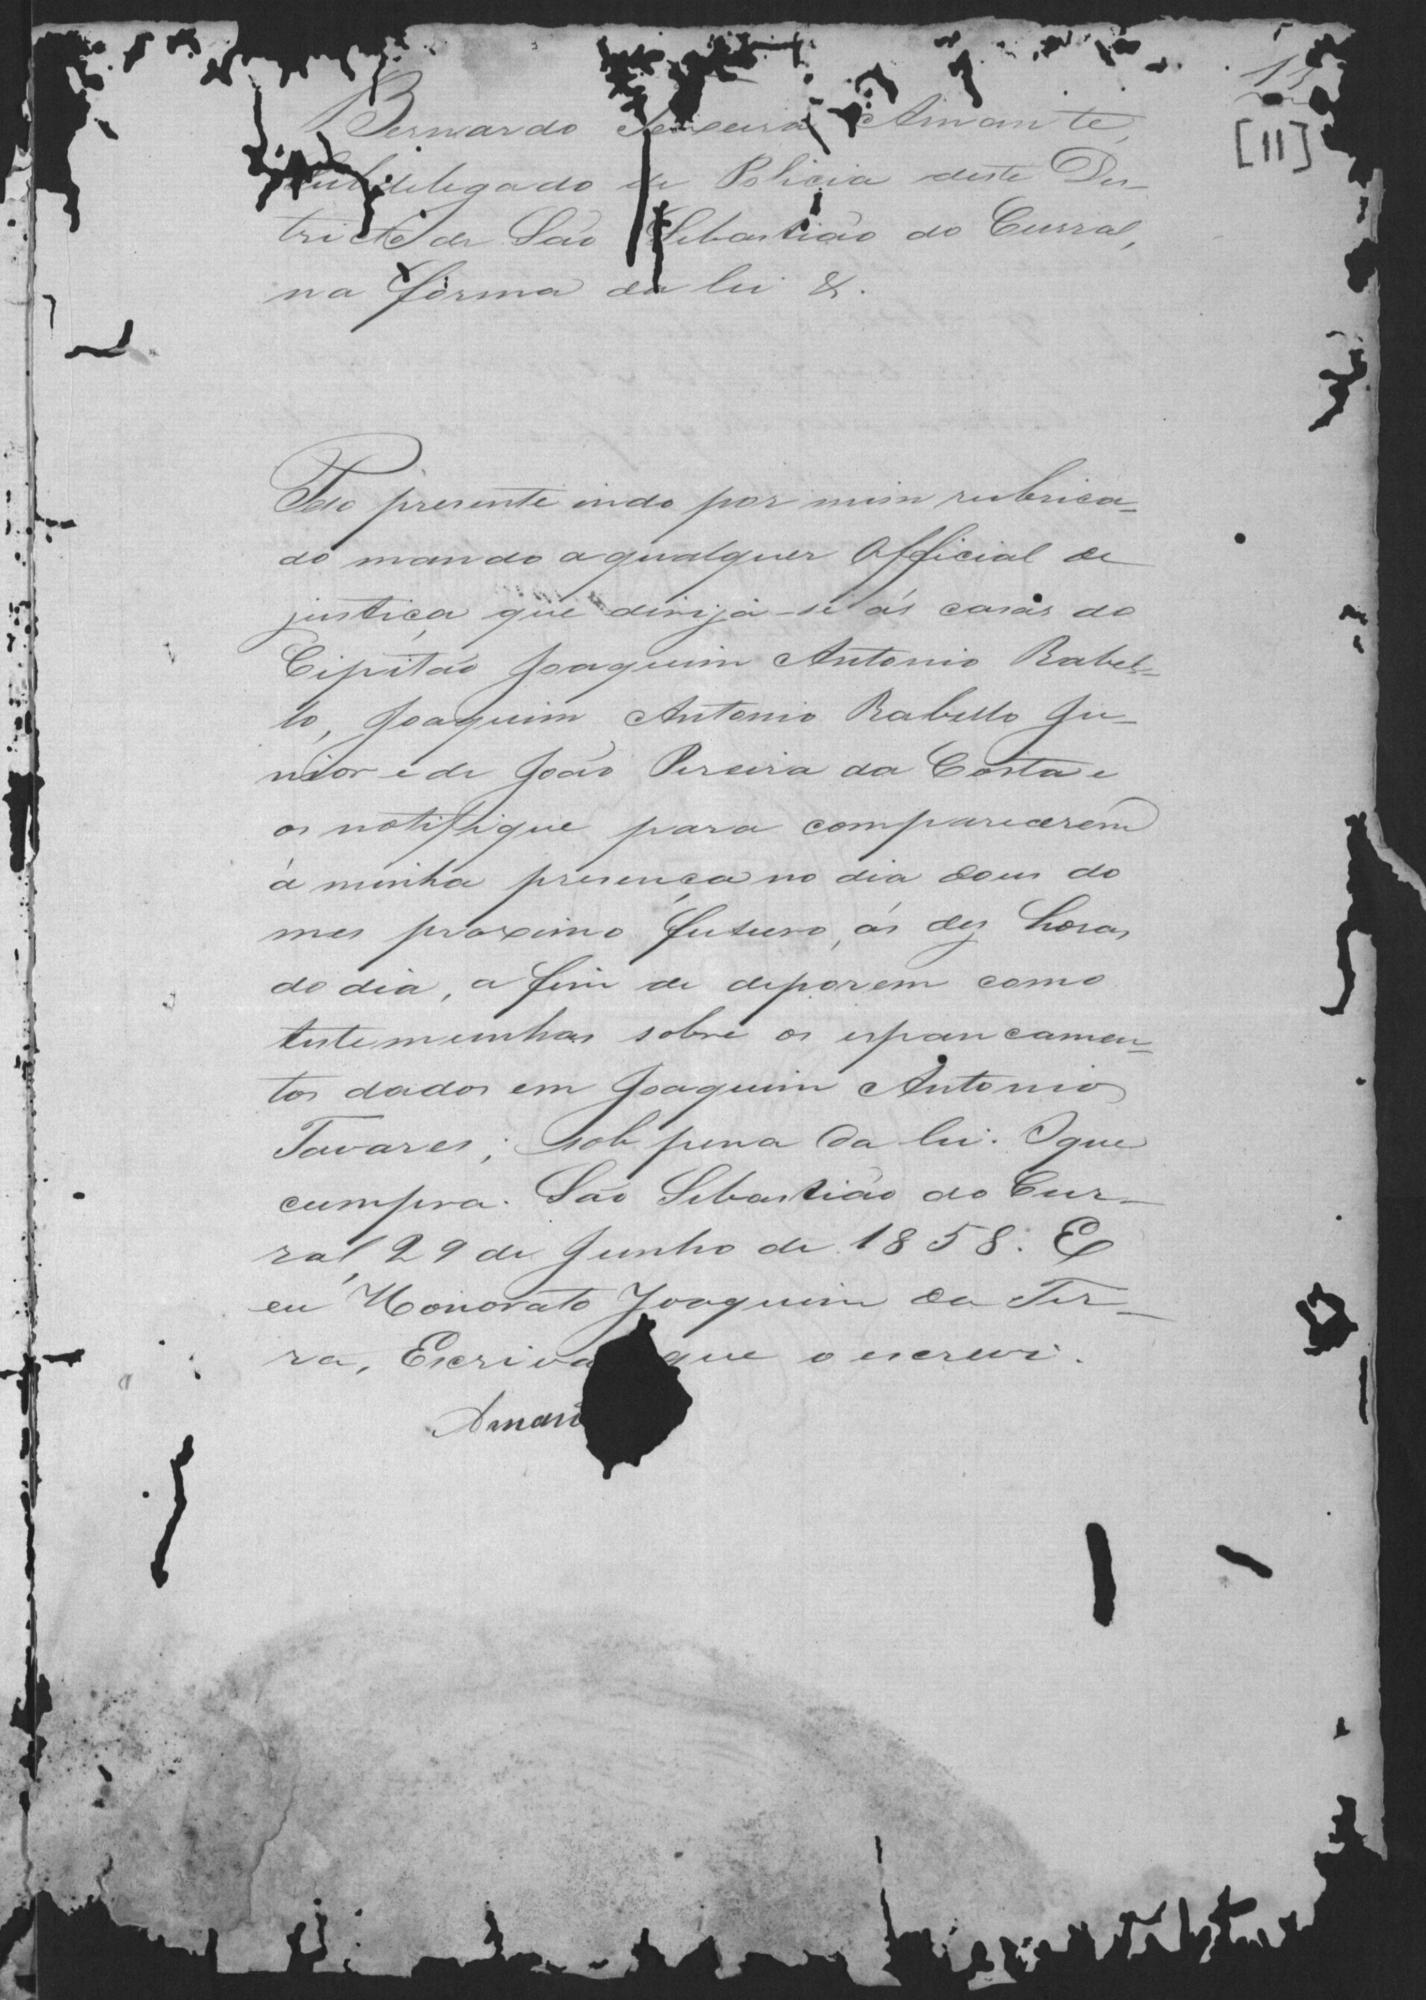 13
[11]
Bernardo Teixeira Amante,
Subdelegado de Policia deste Dis-
tricto de São Sebastião do Curral,
na forma da lei &.
Pelo presente indo por mim rubrica-
do mando a qualquer Official de
justiça, que dirija-se ás casas do
Cipitão Joaquim Antonio Rabel-
lo, Joaquim Antonio Rabello Ju-
nior e de João Pereira da Costa e
os notifique para comparecerem
á minha presença no dia dous do
mes proximo futuro, ás dez horas
do dia, a fim de deporem como
testemunhas sobre os espancamen-
tos dados em Joaquim Antonio
Tavares; sob pena da lei. O que
cumpra. São Sebastião do Cur-
ral, 29 de Junho de 1858. E
eu Honorato Joaquim da Ter-
ra, Escrivã que o escrevi.
Aman